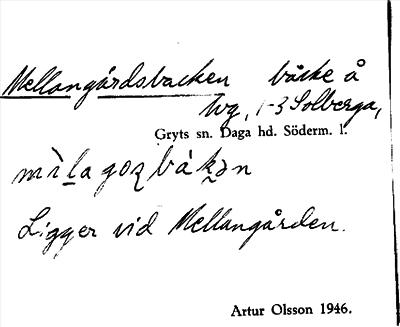 Mellangårdsbacken backe å
hvg, 1-3 Solberga,
Gryts sn. Daga hd. Söderm. l.
Ligger vid Mellangården.
Artur Olsson 1946.